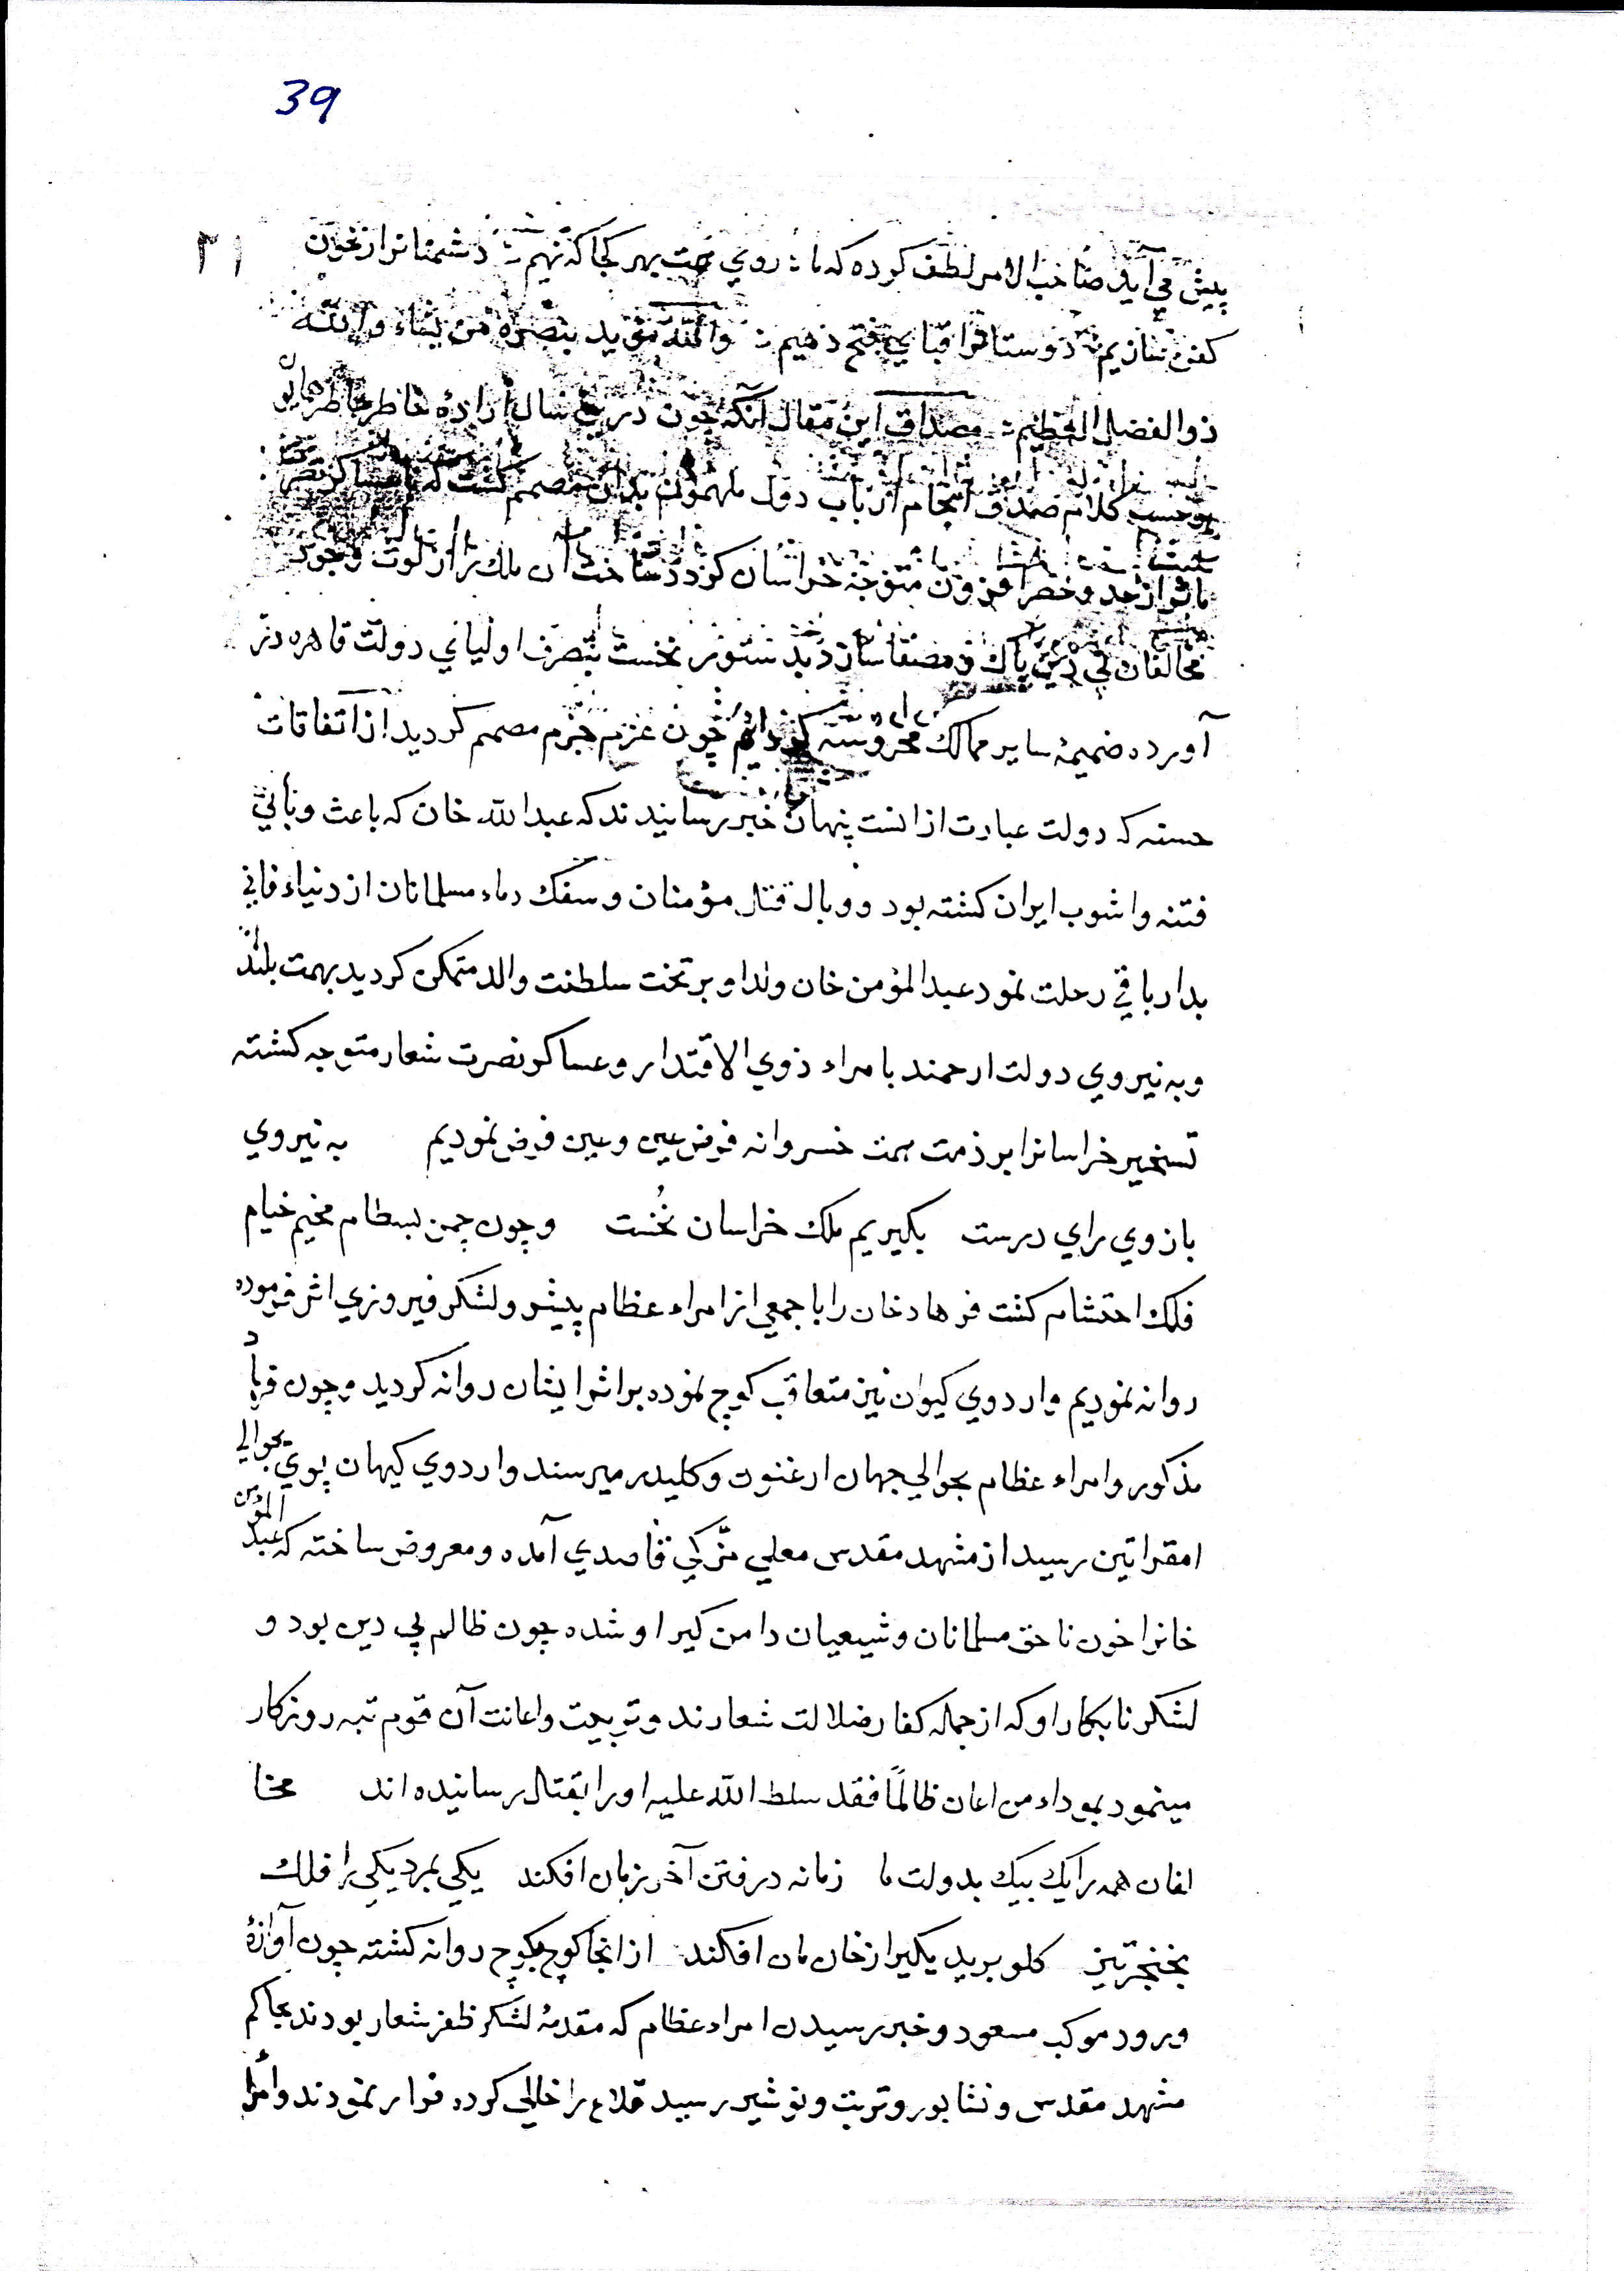 39
۳۱
پیش می آید صاحب الامر لطف کرده که ما : روي همت بهر کجا که نهیم : دشمنانرا ز خون
کفن سازیم : دوستانرا قباي فتح دهیم : والله یؤید بنصره من یشاء والله
ذو الفضل العظیم : مصداق این مقال آنکه چون درین سال اراده خاطر خاطر همایون
بموجب کلام صدق انجام ارباب دول ملهمون بدان مصمم کشت که با عساکر نصرت
ماثر از حد و حصر افزون متوجه خراسان کردد ساخت ان ملك را از لوث وجود
مخالفان بي دین پاك و مصفا سازد بدستور نخست بتصرف اولیاي دولت قاهره در
آورده ضمیمهٔ سایر ممالك محروسه کردانیم چون عزم جزم مصمم کردید از اتفاقات
حسنه که دولت عبارت از انست پنهان خبر رسانیدند که عبد الله خان که باعث و باني
فتنه و اشوب ایران کشته بود و وبال قتال مؤمنان و سفك دماء مسلمانان از دنیاء فاني
بدار باقي رحلت نمود عبد المؤمن خان ولد او بر تخت سلطنت والد متمکن کردید بهمت بلند
و به نیروي دولت ارجمند با مراء ذوي الاقتدار و عساکر نصرت شعار متوجه کشته
تسخیر خراسانرا بر ذمت همت خسروانه فرض عین و عین فرض نمودیم به نیروي
بازوي و راي درست بکیریم ملك خراسان نخُست و چون چمن بسطام مخیم خیام
فلك احتشام کشت فرهاد خان را با جمعي از امراء عظام پیشرو لشکر فیروزي اثر فرموده
روانه نمودیم و اردوي کیوان نیز متعاقب کوچ نموده بر اثر ایشان روانه کردید و چون فرهاد
مذکور و امراء عظام بحوالي جهان ارغنون و کلیدر میرسند و اردوي کیهان پوي بحوالي
امقراتین رسید از مشهد مقدس معلي مزکي قاصدي آمده و معروض ساخته که عبد المؤمن
خانرا خون ناحق مسلمانان و شیعیان دامن کیر او شده چون ظالم بي دین بود و
لشکر نابکار او که از جمله کفار ضلالت شعارند و تربیت و اعانت آن قوم تبه روزکار
مینمود بموداء من اعان ظالمًا فقد سلط الله علیه او را بقتال رسانیده اند مخا
لفان همه را یك بیك بدولت ما زمانه در فتن آخر زمان افکند یکي بمرد یکي را فلك
بخنجر تیز کلو برید یکیرا ز خان مان افکند از انجا کوچ بکوچ روانه کشته چون آوازهٔ
ورود موکب مسعود و خبر رسیدن امراء عظام که مقدمهٔ لشکر ظفر شعار بودند بحاکم
مشهد مقدس و نشابور و تربت و نوشیر رسید قلاع را خالي کرده فرار نمودند و امرا